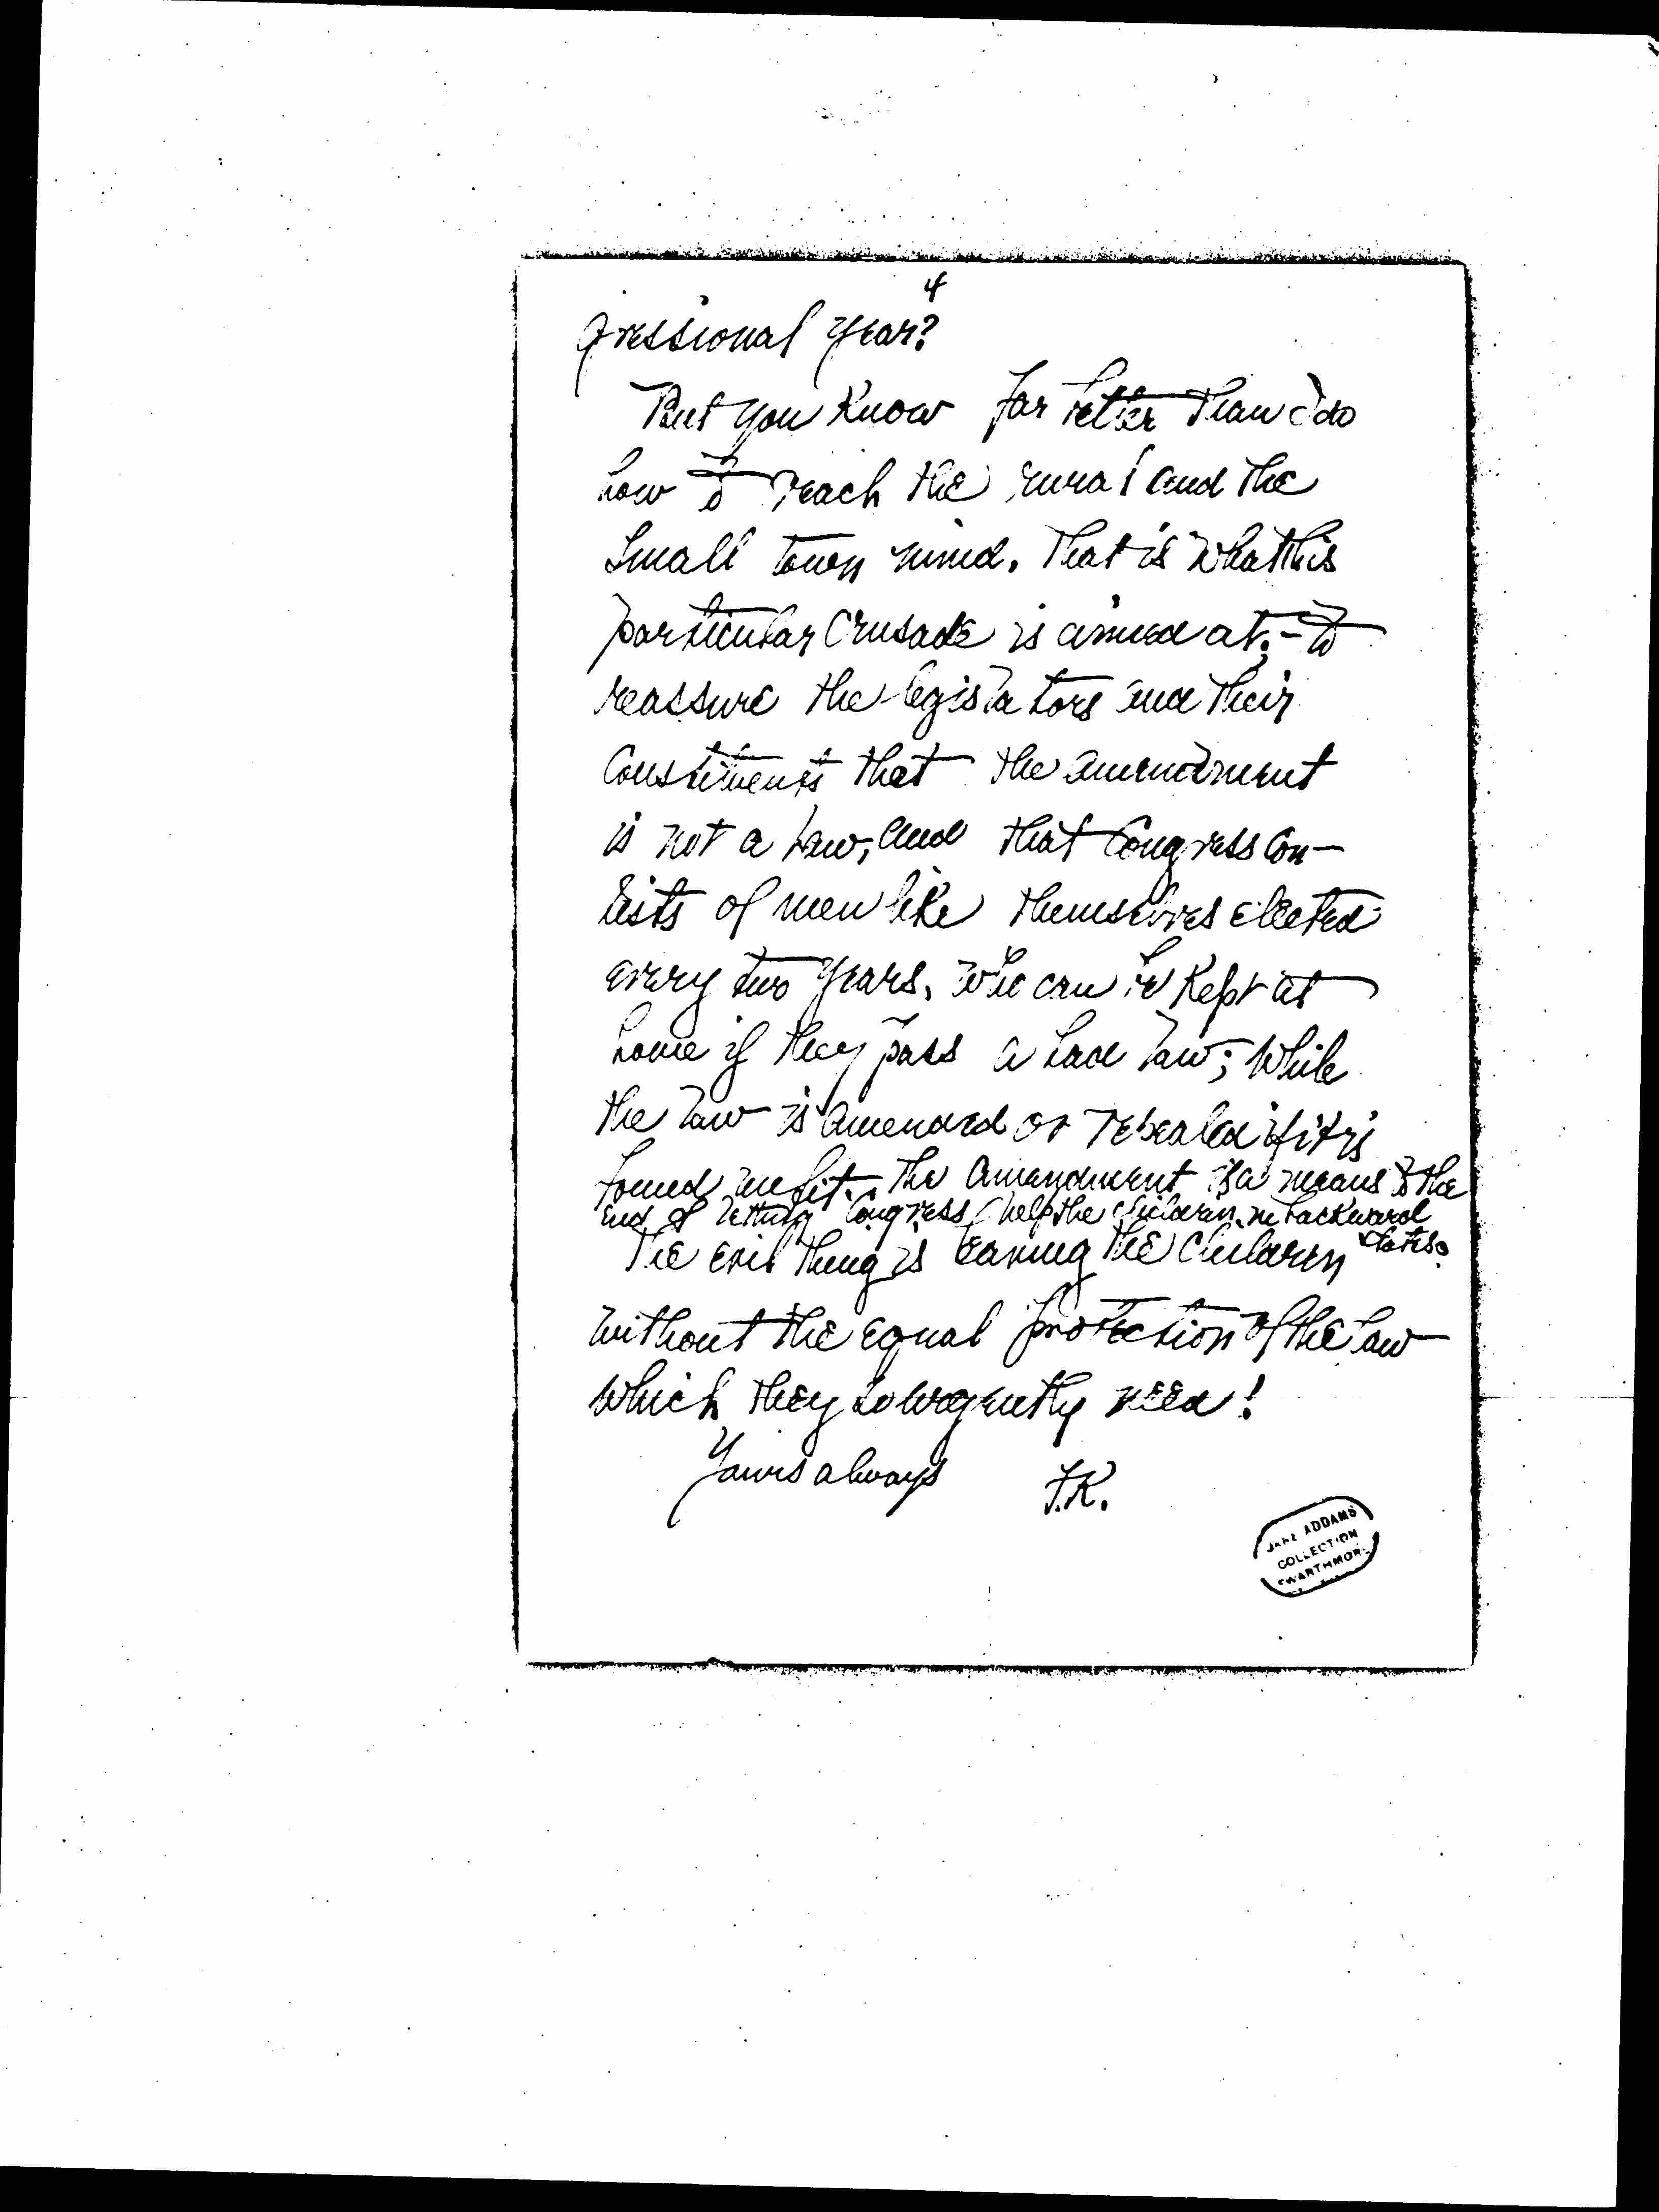 4
gressional year?
But you know far better than I do
how to reach the rural and the
small town mind. That is what this
particular crusade is aimed at, - to
reassure the legislators and their
constituents that the amendment
is not a law, and that Congress con-
sists of men like themselves elected
every two years, who can be kept at
home if they pass a bad law; while
the law is amended or repealed if it is
found unfit. The Amendment is a means to the
end of letting Congress help the children in backward
states.
The evil thing is leaving the children
without the equal protection of the law
which they so urgently need!
Yours always F.K.
JANE ADDAMS
COLLECTION
SWARTHMORE